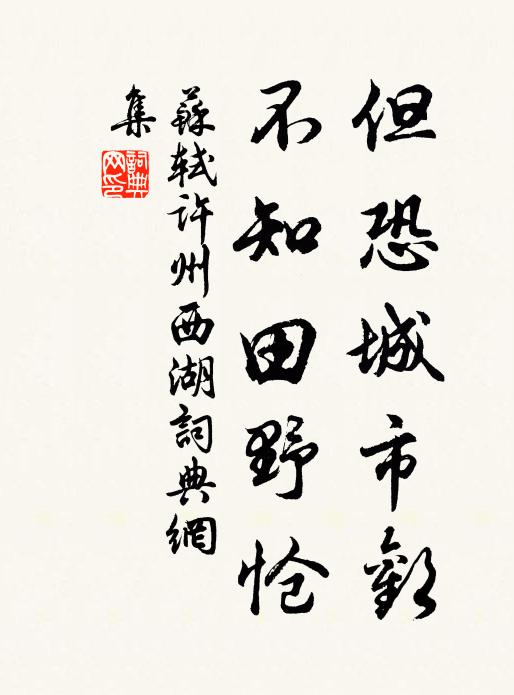 但恐城市歡
不知田野愴
蘇軾許州西湖詞典網
集
詞典
网印